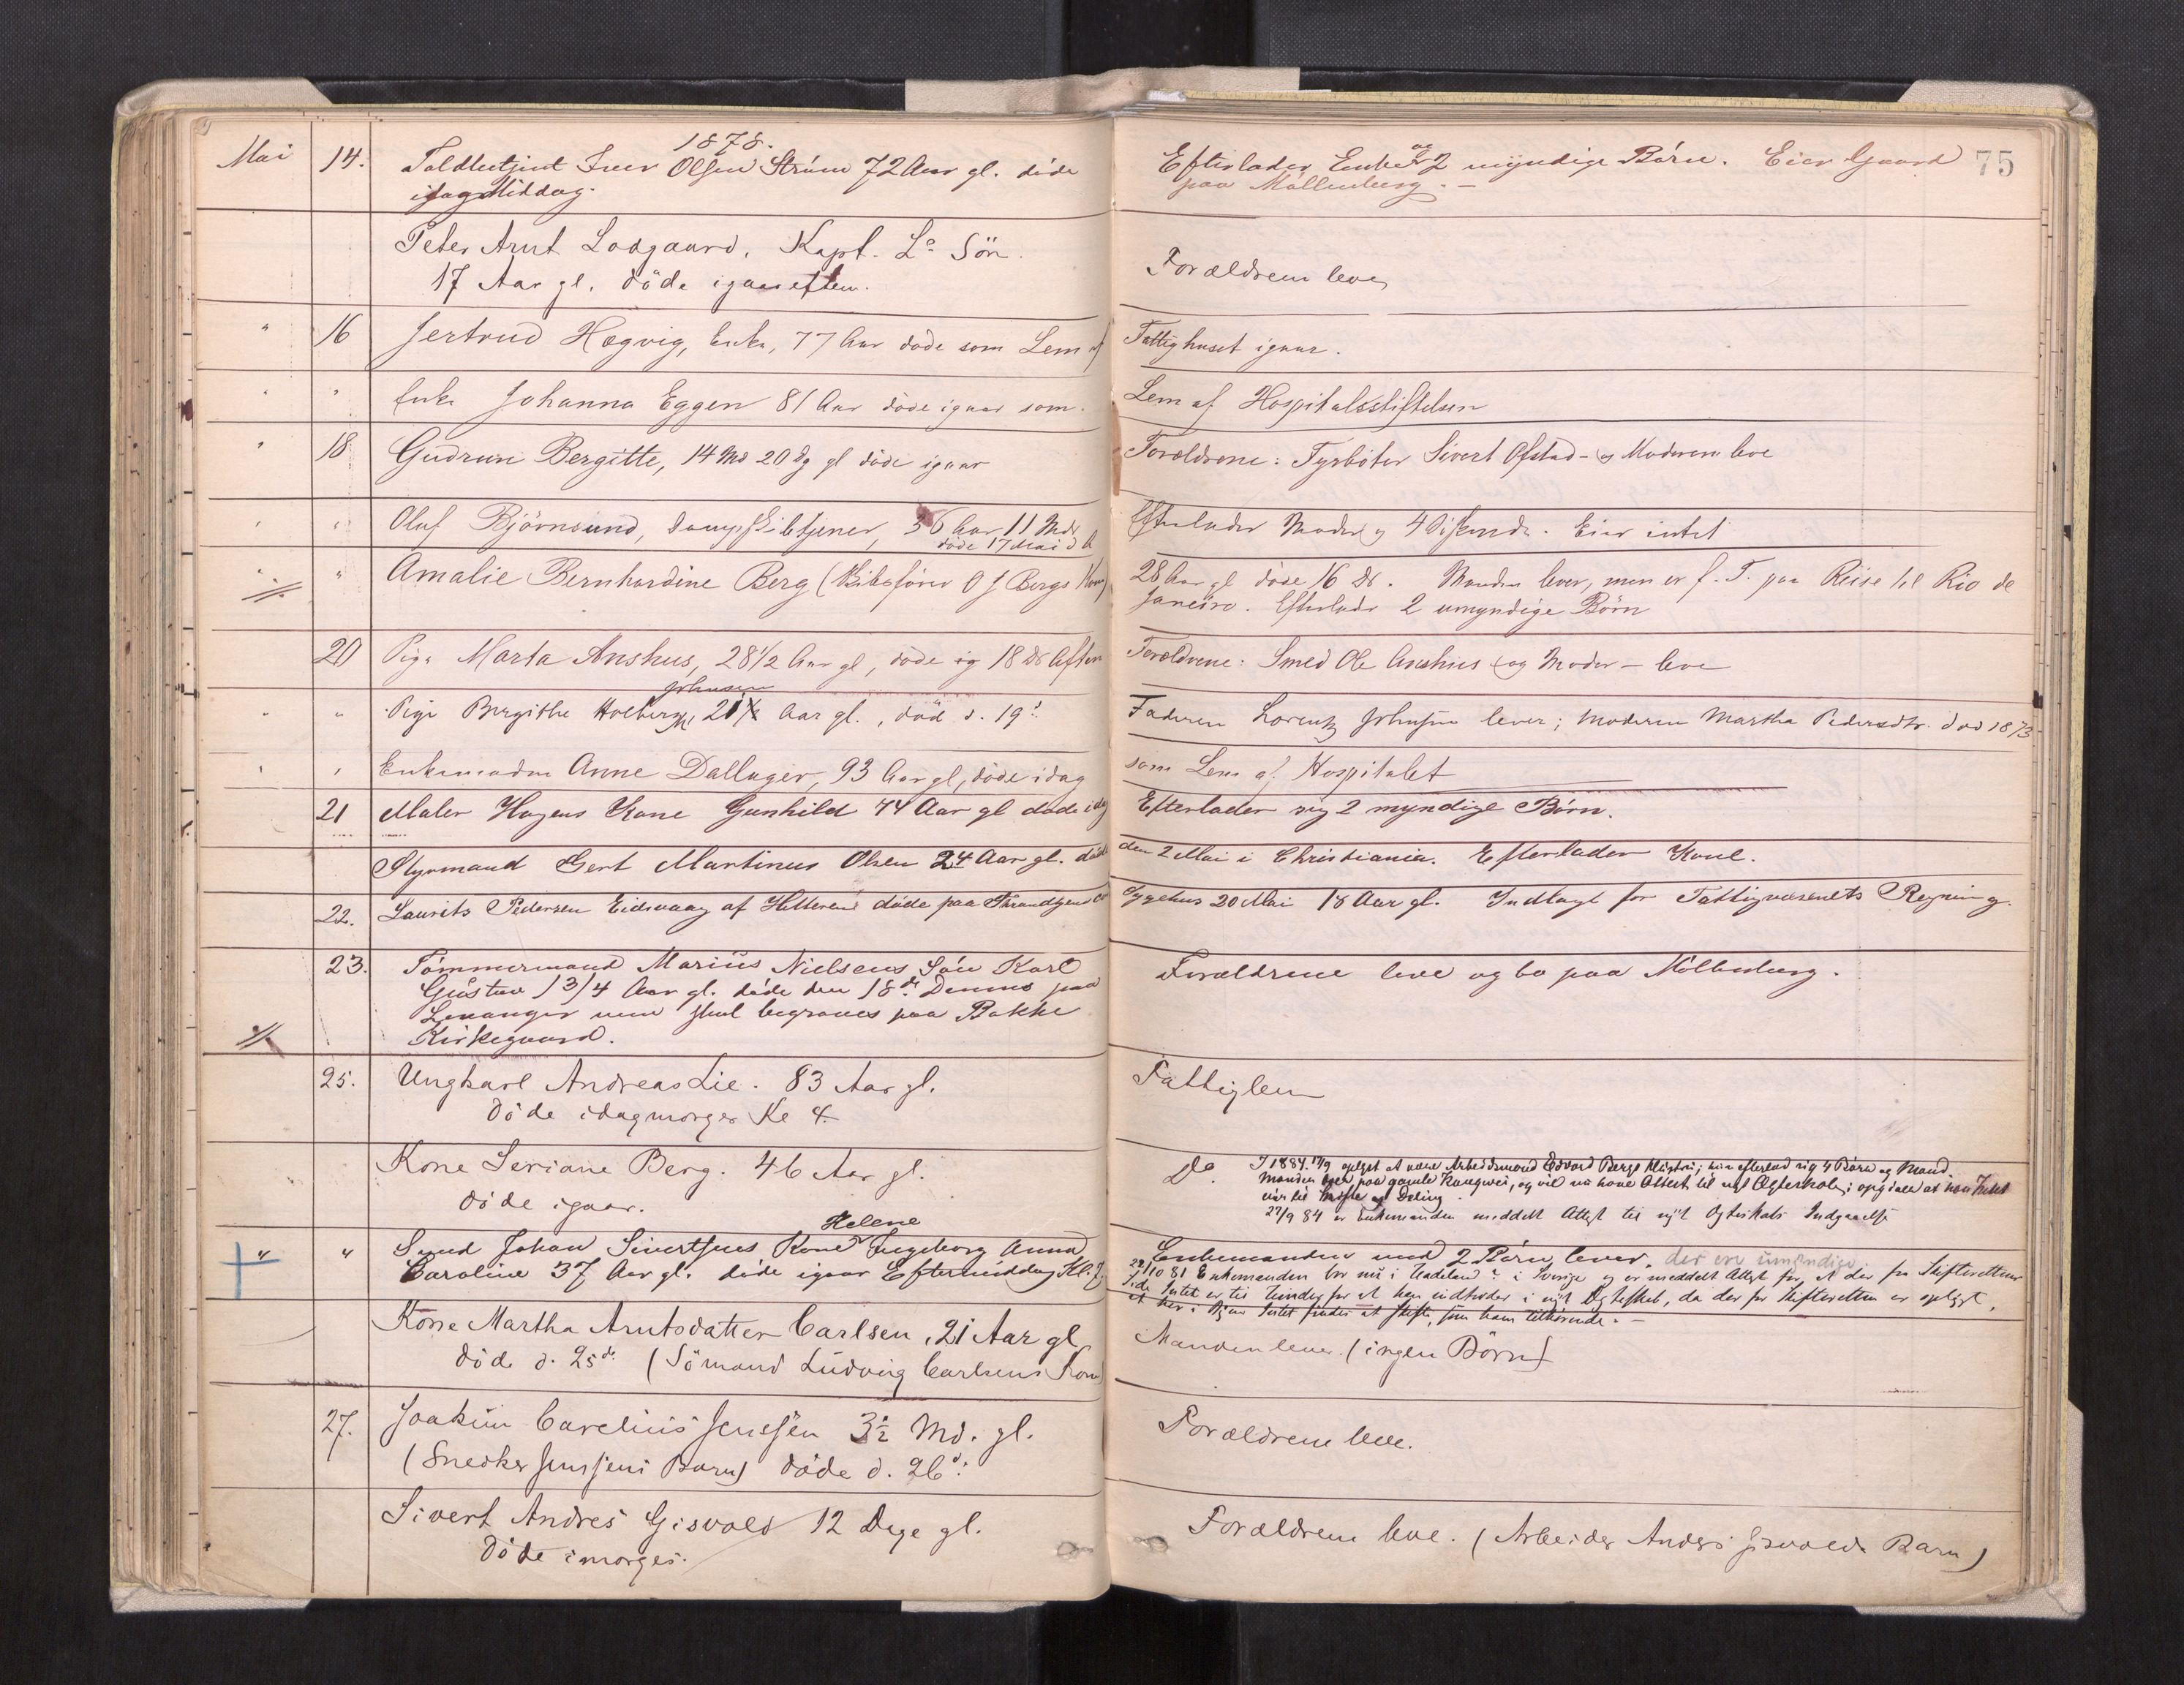 1878.
75
Mai 14. Toldbetjent Iver Olsen Ström 72 Aar gl. döde
idag Middag.
Efterlader Enke og 2 myndige Börn. Eier Gaard
paa Möllenberg. –
Peter Arnt Lodgaard. Kapt. Lo Sön.
17 Aar gl. döde igaaraften.
Forældrene leve
" 16 Jertrud Hegvig, Enke, 77 Aar döde som Lem af
Fattighuset igaar.
" " Enke Johanna Eggen 81 Aar döde igaar som
Lem af Hospitalsstiftelsen
" 18 Gudrun Bergitte, 14 Md 20 Dg gl döde igaar
Forældrene: Fyrböter Sivert Ofstad – og Moderen leve
" " Oluf Björnsund, Dampskibstjener, 36 Aar 11 Mdr
döde 17 Mai d A
Efterlader Moder og 4 Söskende. Eier intet
" " Amalie Bernhardine Berg (Skibsförer O J Bergs Kone)
28 Aar gl döde 16 Ds. Manden lever, men er f. T. paa Reise til Rio de
Janeiro. Efterlader 2 umyndige Börn
20 Pige Marta Anshus, 28 1/2 Aar gl, döde ig 18 Ds Aften
Forældrene: Smed Ole Anshus og Moder – leve
Johnsen
" " Pige Bergithe Holberg, 21 1/2 Aar gl., död d. 19d:
Faderen Lorentz Johnsen lever; Moderen Martha Pedersdtr. död 1873
" " Enkemadm Anne Dallager, 93 Aar gl, döde idag
som Lem af Hospitalet
21 Maler Hagens Kone Gunhild 74 Aar gl döde idag
Efterlader sig 2 myndige Börn.
Styrmand Gert Martinus Olsen 24 Aar gl. döde
den 2 Mai i Christiania. Efterlader Kone.
22. Laurits Pedersen Eidsvaag af Hitteren döde paa Throndhjems
Sygehus 20 Mai 18 Aar gl. Indlagt for Fattigvæsenets Regning.
23. Tömmermand Marius Nielsens Sön Karl
Gustav 1 3/4 Aar gl. döde den 18de Dennes paa
Levanger men skal begraves paa Bakke
Kirkegaard.
Forældrene leve og bo paa Möllenberg.
25. Ungkarl Andreas Lie. 83 Aar gl.
döde idagmorges Kl 4.
Fattiglem
Kone Seriane Berg. 46 Aar gl.
döde igaar.
Do. I 1884 17/9 oplyst at være Arbeidsmand Edvard Bergs Hustru; hun efterlod sig 4 Börn og Mand.
Manden boer paa gamle Kongevei, og vil nu have Attest til nyt Ægteskab; opgiver at han Intet
eier til Skifte og Deling.
27/9 84 er Enkemanden meddelt Attest til nyt Ægteskabs Indgaaelse
Helene
" " Smed Johan Sivertsens Kone Ingeborg Anna
Caroline 37 Aar gl. döde igaar Eftermiddag Kl. 2
Enkemanden med 2 Börn lever. der ere umyndige
22/10 81 Enkemanden bor nu i i Sverige og er meddelt Attest for, at der fra Skifterettens
Side Intet er til Hinder for at han indtræder i nyt Ægteskab, da der for Skifteretten er oplyst,
at her i Byen Intet findes at skifte, som ham tilhörende. –
Kone Martha Arntsdatter Carlsen, 21 Aar gl.
döde d. 25de (Sömand Ludvig Carlsens Kone)
Manden lever. (ingen Börn)
27. Joakim Carelius Jenssen 3 1/2 Md. gl.
(Snedker Jenssens Barn) döde d. 26d:
Forældrene leve.
Sivert Andres Gisvold 12 Dage gl.
döde imorges.
Forældrene leve. (Arbeider Anders Gisvolds Barn)